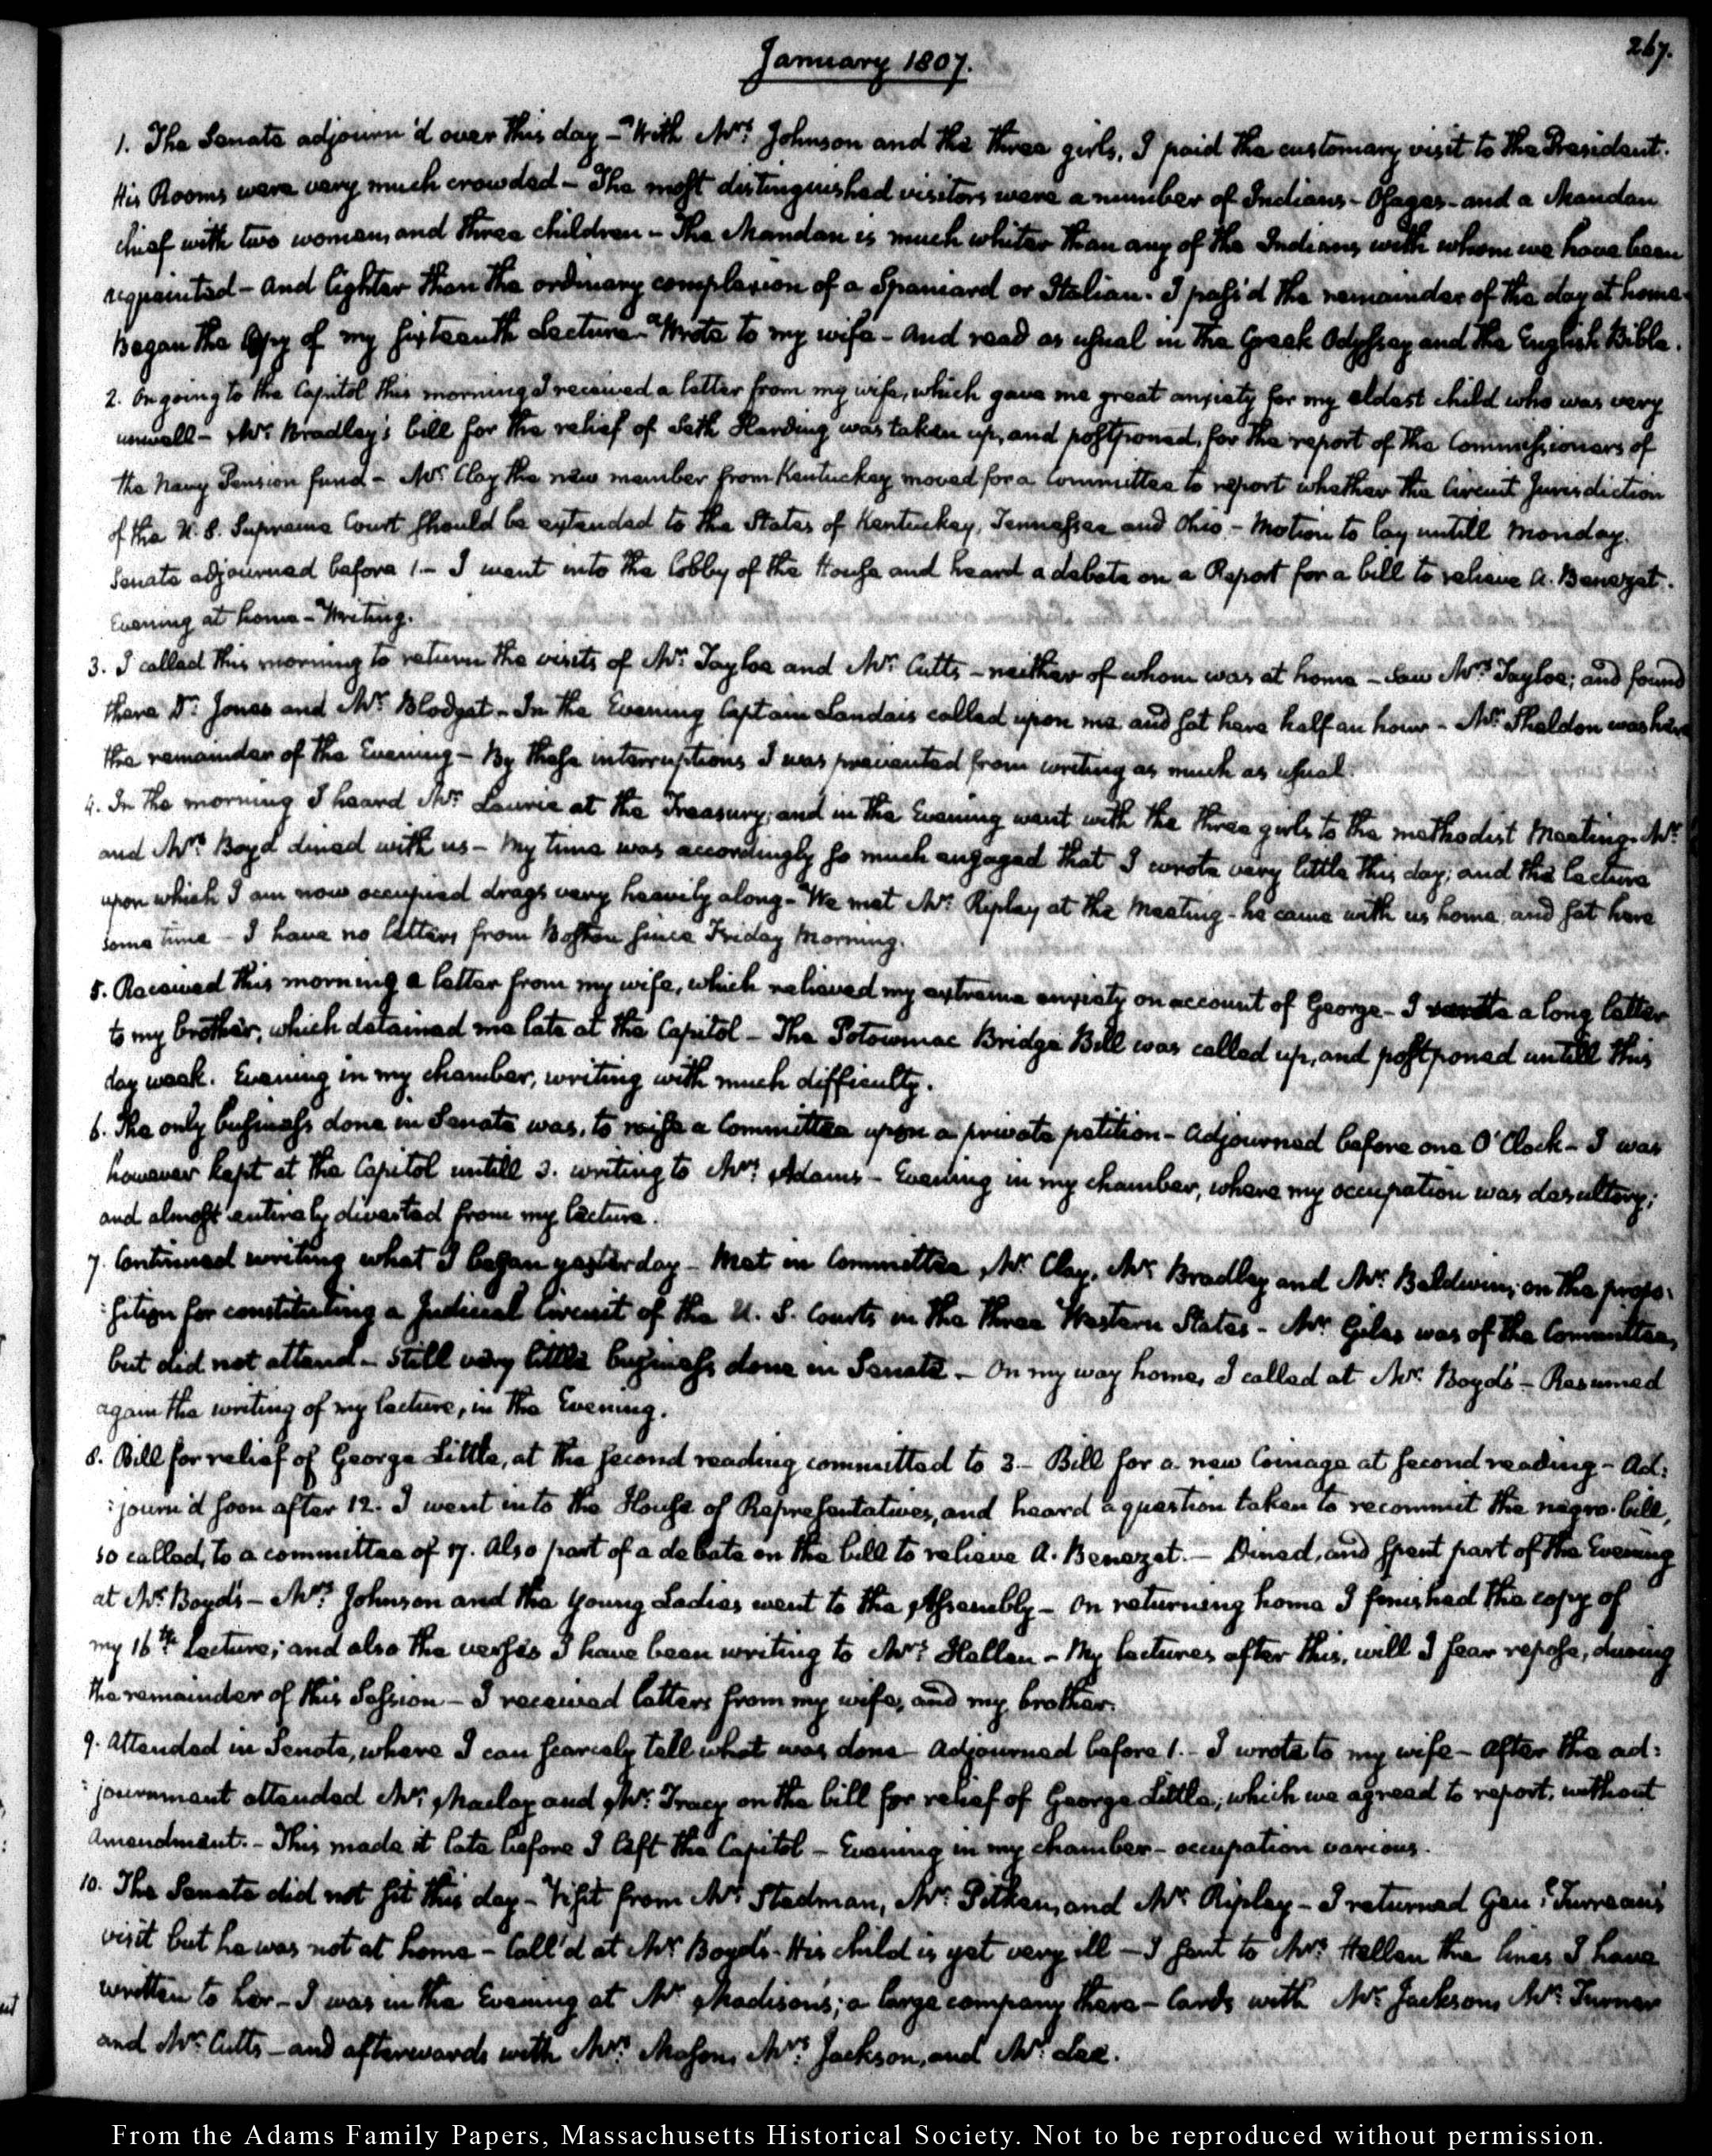 267.
January 1807.
1. The Senate adjourn'd over this day – With Mrs. Johnson and the three girls, I paid the customary visit to the President.
His Rooms were very much crowded – The most distinguished visitors were a number of Indians – Osages – and a Mandan
chief with two women, and three children – The Mandan is much whiter than any of the Indians with whom we have been
acquainted – and lighter than the ordinary complexion of a Spaniard or Italian. I pass'd the remainder of the day at home.
Began the Copy of my sixteenth Lecture – Wrote to my wife – and read as usual in the Greek Odyssey and the English Bible.
2. On going to the Capitol this morning I received a letter from my wife, which gave me great anxiety for my eldest child who was very
unwell – Mr. Bradley's bill for the relief of Seth Harding was taken up, and postponed, for the report of the Commissioners of
the Navy Pension fund – Mr. Clay the new member from Kentuckey moved for a Committee to report whether the Circuit Jurisdiction
of the U. S. Supreme Court should be extended to the States of Kentuckey, Tennessee and Ohio – Motion to lay untill Monday.
Senate adjourned before 1. – I went into the lobby of the House and heard a debate on a Report for a bill to relieve A. Benezet.
Evening at home – Writing.
3. I called this morning to return the visits of Mr. Tayloe and Mr. Cutts – neither of whom was at home – Saw Mrs. Tayloe; and found
there Dr. Jones and Mr. Blodget – In the Evening Captain Landais called upon me and sat here half an hour – Mr. Sheldon was here
the remainder of the Evening – By these interruptions I was prevented from writing as much as usual.
4. In the morning I heard Mr. Laurie at the Treasury; and in the Evening went with the three girls to the methodist Meeting. Mr.
and Mrs. Boyd dined with us – My time was accordingly so much engaged that I wrote very little this day; and the lecture
upon which I am now occupied drags very heavily along – We met Mr. Ripley at the Meeting – he came with us home, and sat here
some time – I have no letters from Boston since Friday Morning.
5. Received this morning a letter from my wife, which relieved my extreme anxiety on account of George – I wrote a long letter
to my brother, which detained me late at the Capitol – The Potowmac Bridge Bill was called up, and postponed untill this
day week. Evening in my chamber, writing with much difficulty.
6. The only business done in Senate was, to raise a Committee upon a private petition – Adjourned before one O'Clock – I was
however kept at the Capitol untill 3. writing to Mrs. Adams – Evening in my chamber, where my occupation was desultory;
and almost entirely diverted from my lecture.
7. Continued writing what I began yesterday – Met in Committee, Mr. Clay, Mr. Bradley and Mr. Baldwin; on the propo:
:sition for constituting a Judicial Circuit of the U. S. Courts in the three Western States – Mr. Giles was of the Committee,
but did not attend – Still very little business done in Senate – On my way home, I called at Mr. Boyd's – Resumed
again the writing of my lecture, in the Evening.
8. Bill for relief of George Little, at the second reading committed to 3 – Bill for a new Coinage at second reading – Ad:
:journ'd soon after 12. I went into the House of Representatives, and heard a question taken to recommit the negro-bill,
so called, to a committee of 17. Also part of a debate on the bill to relieve A. Benezet. – Dined, and spent part of the Evening
at Mr. Boyd's – Mrs. Johnson and the Young Ladies went to the Assembly – On returning home I finished the copy of
my 16th. Lecture; and also the verses I have been writing to Mrs. Hellen – My lectures after this, will I fear repose, during
the remainder of this Session – I received letters from my wife, and my brother.
9. Attended in Senate, where I can scarcely tell what was done – Adjourned before 1. – I wrote to my wife – After the ad:
:journment attended Mr. Maclay and Mr. Tracy on the bill for relief of George Little; which we agreed to report, without
amendment. – This made it late before I left the Capitol – Evening in my chamber – occupation various.
10. The Senate did not sit this day – Visit from Mr. Stedman, Mr. Pitken, and Mr. Ripley – I returned Genl. Turreau's
visit but he was not at home – Call'd at Mr. Boyd's – His child is yet very ill – I sent to Mrs. Hellen the lines I have
written to her – I was in the Evening at Mr. Madison's; a large company there – Cards with Mr. Jackson, Mr. Turner
and Mr. Cutts – and afterwards with Mrs. Mason, Mrs. Jackson, and Mr. Lee.
From the Adams Family Papers, Massachusetts Historical Society. Not to be reproduced without permission.